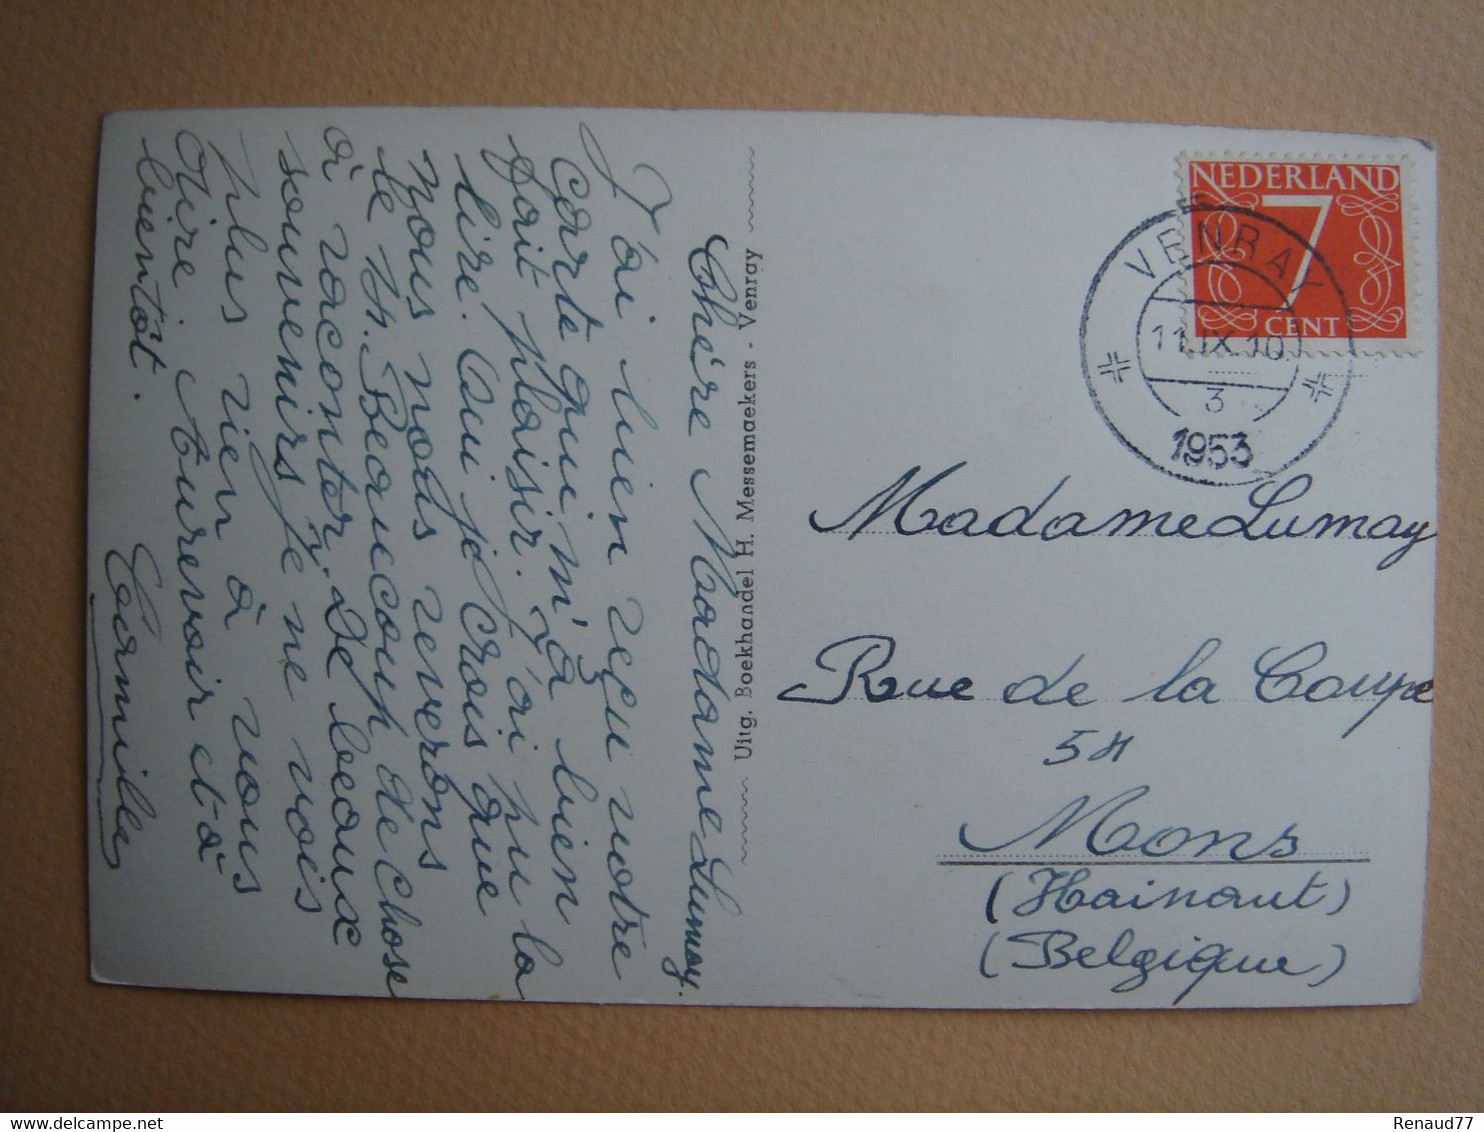 Chére Madame Lumay.
J'ai bien reçu votre
carte qui m'a bien
fait plaisir. J'ai pu la
lire. Oui je crois que
nous nous reverons
le 14. Beaucoup de chose
à raconter. De beaux
souvenirs, je ne vois
plus rien à vous
dire. Aurevoir et à
bientôt.
Camille
Uitg. Boekhandel H. Messemaekers - Venray
NEDERLAND
7
CENT
VENRAY
11.IX.10
3
1953
Madame Lumay
Rue de la Coupe
54
Mons
(Hainaut)
(Belgique)
delcampe.net
Renaud77